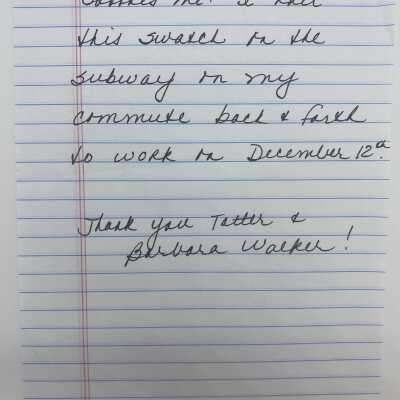 me! I knit
this swatch on the
subway on my
commute back & forth
to work on December 12th.
Thank you Tatter &
Barbara Walker!